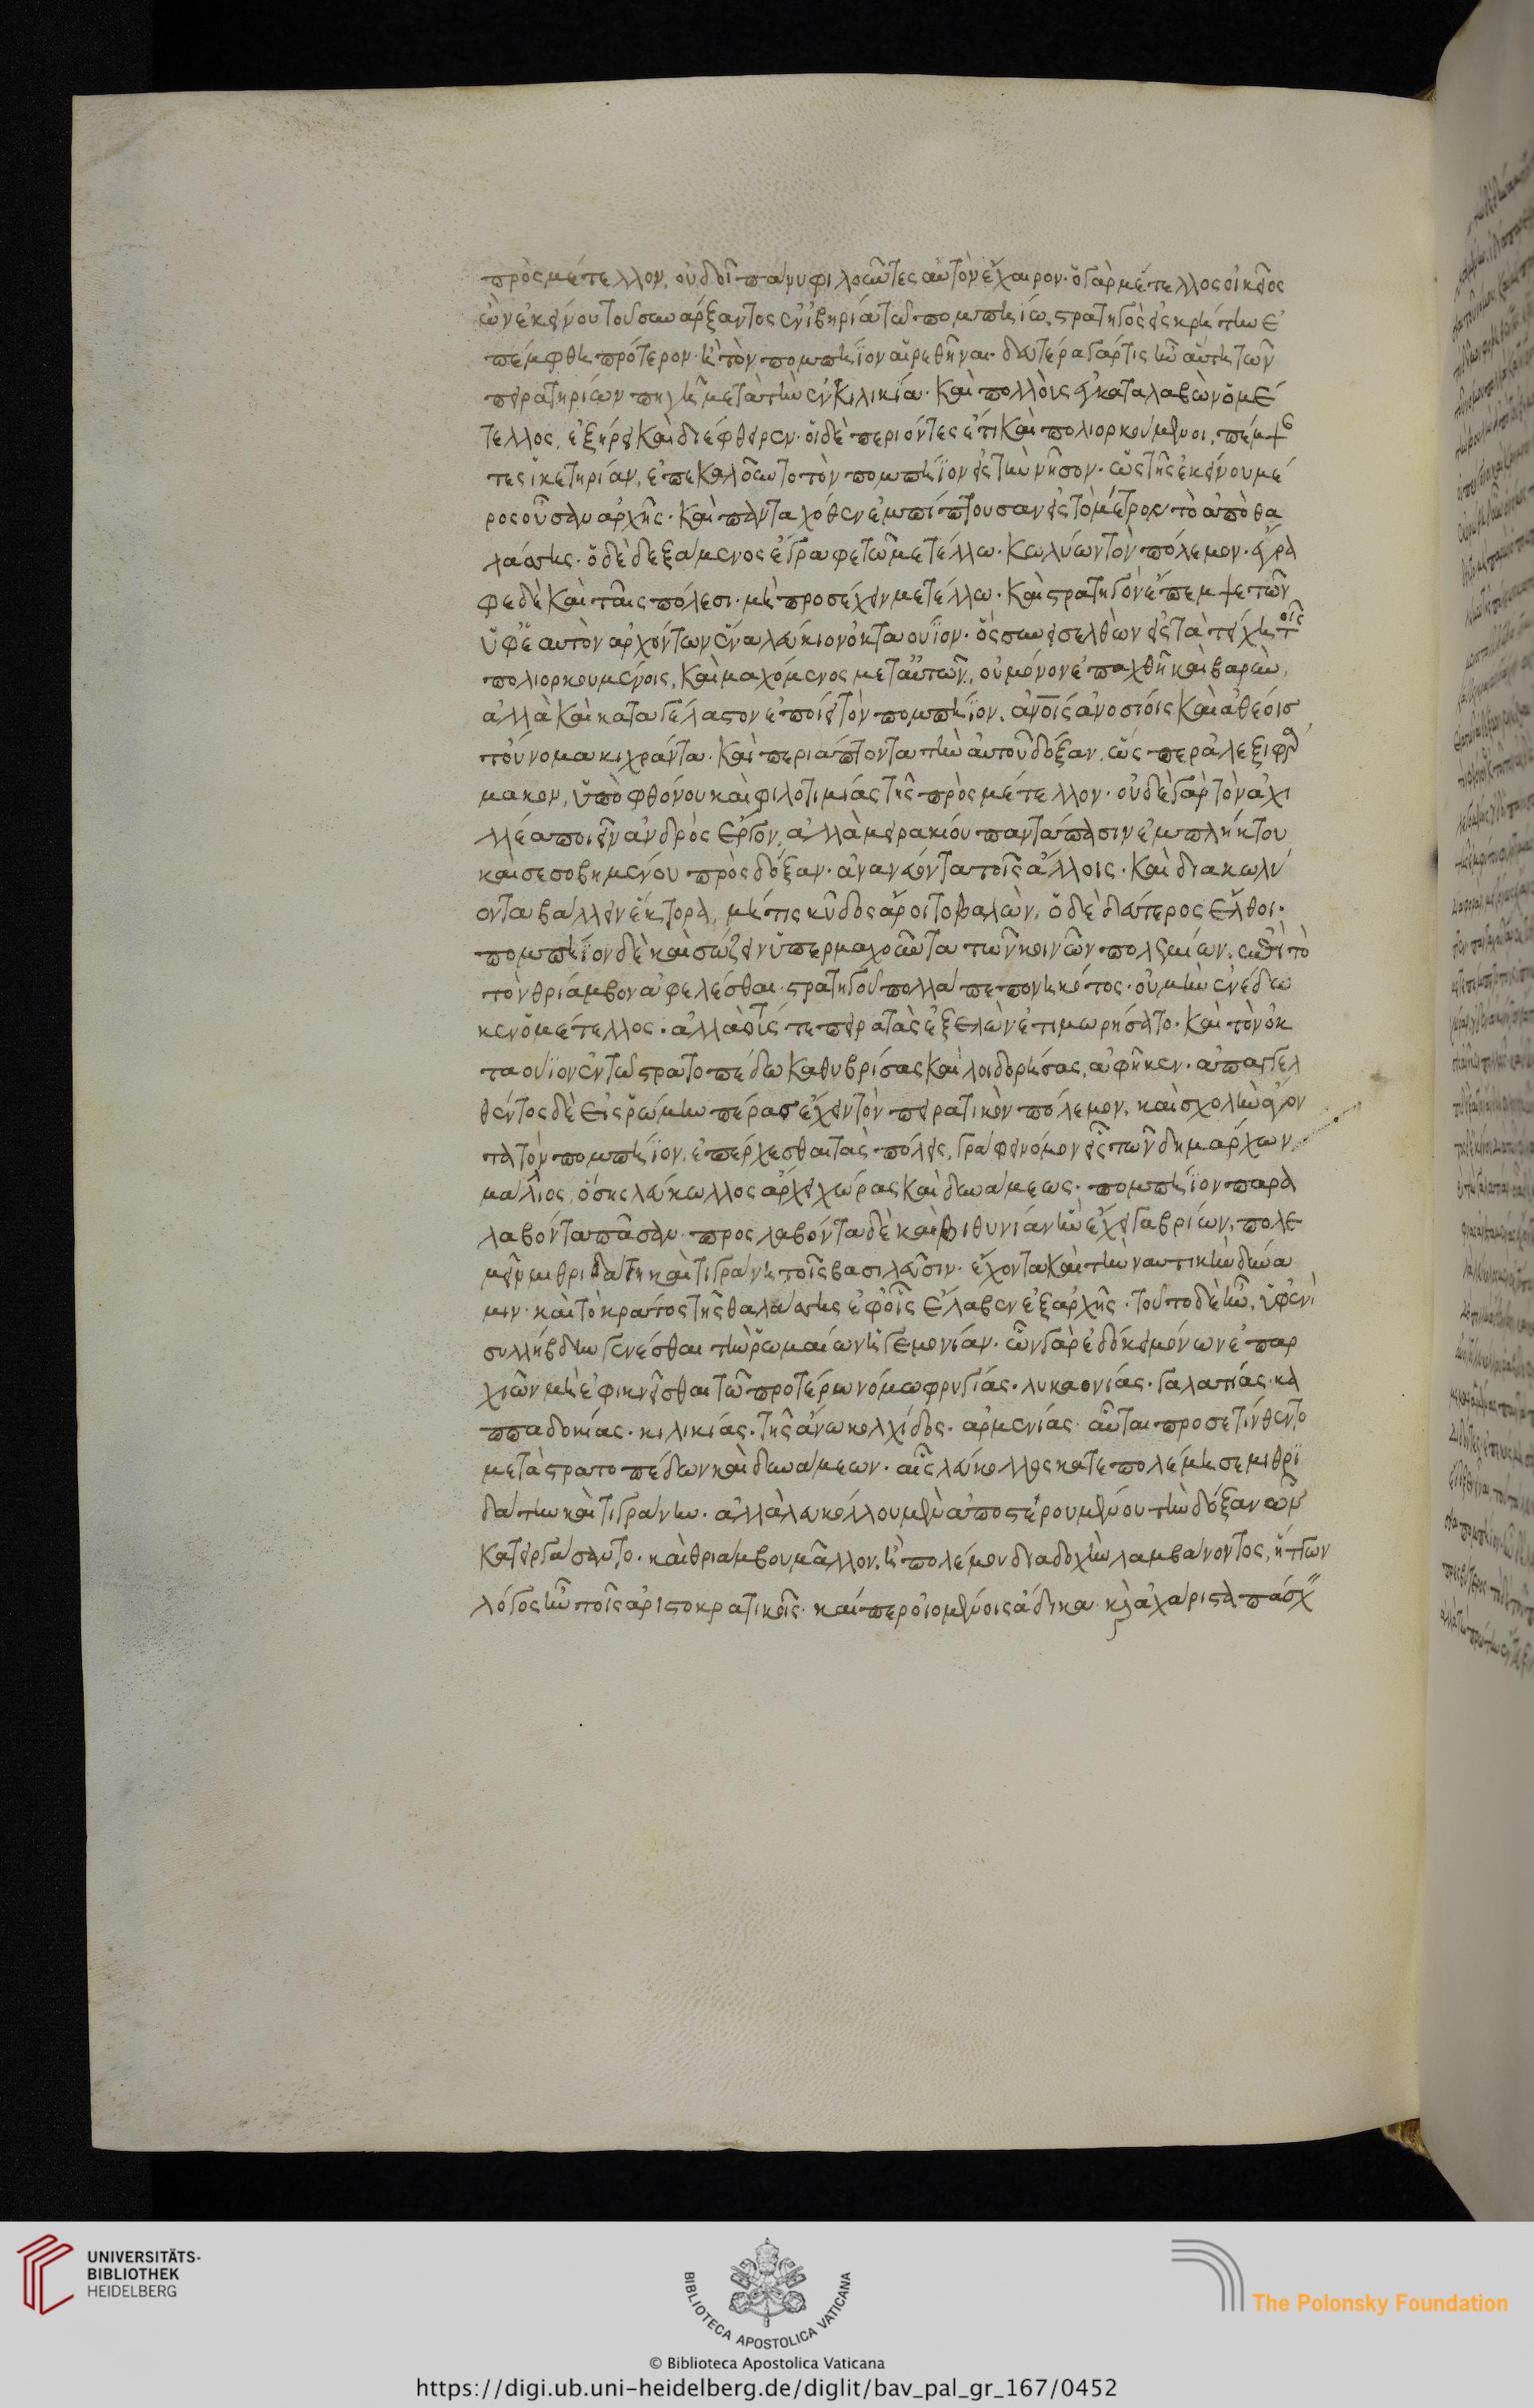 πρὸς μέτελλον, οὐδ' οἱ πάνυ φιλοῦντες αὐτὸν ἔχαιρον· ὁ γὰρ μέτελλος οἰκεῖος
ὢν ἐκείνου τοῦ συνάρξαντος ἐν ἰβηρία τῶ πομπηίω, στρατηγὸς εἰς κρήτην ἐ
πέμφθη πρότερον· ἢ τὸν πομπήϊον αἱρεθῆναι· δευτέρα γάρ τις ἦν αὕτη τῶν
πειρατηρίων πηγὴ μετὰ τὴν ἐν κιλικία· καὶ πολλοὺς ἐγκαταλαβὼν ὁ μέ
τελλος, ἐξήρει καὶ διέφθειρεν· οἱ δὲ περιόντες ἔτι καὶ πολιορκούμενοι, πέμψαν
τες ἱκετηρίαν, ἐπεκαλοῦντο τὸν πομπήϊον εἰς τὴν νῆσον· ὡς τῆς ἐκείνου μέ
ρος οὖσαν ἀρχῆς· καὶ πανταχόθεν ἐμπίπτουσαν εἰς τὸ μέτρον τὸ ἀπὸ θα
λάττης· ὁ δὲ δεξάμενος ἔγραφε τῶ μετέλλω· κωλύων τὸν πόλεμον· ἔγρα
φε δὲ καὶ ταῖς πόλεσι· μὴ προσέχειν μετέλλω· καὶ στρατηγὸν ἔπεμψε τῶν
ὑφ' ἑαυτὸν ἀρχόντων ἕνα λεύκιον ὀκταούϊον· ὃς συνεισελθὼν εἰς τὰ τείχη τοῖς
πολιορκουμένοις, καὶ μαχόμενος μετ' αὐτῶν, οὐ μόνον ἐπαχθῆ καὶ βαρὺν,
ἀλλὰ καὶ καταγέλαστον ἐποίει τὸν πομπήϊον, ἀνοις ἀνοσίοις καὶ ἀθέοις
τοὔνομα κιχράντα· καὶ περιάπτοντα τὴν αὐτοῦ δόξαν, ὥσπερ ἀλεξιφάρ
μακον, ὑπὸ φθόνου καὶ φιλοτιμίας τῆς πρὸς μέτελλον· οὐδὲ γὰρ τὸν ἀχι
λλέα ποιεῖν ἀνδρὸς ἔργον, ἀλλὰ μειρακίου παντάπασιν ἐμπλήκτου
καὶ σεσοβημένου πρὸς δόξαν· ἀνανεύοντα τοῖς ἄλλοις· καὶ διακωλύ
οντα βάλλειν ἕκτορα, μή τις κῦδος ἄροιτο βαλὼν, ὁ δὲ δεύτερος ἔλθοι·
πομπήϊον δὲ καὶ σώζειν ὑπερμαχοῦντα τῶν κοινῶν πολεμίων, ἐπὶ τὸ
τὸν θρίαμβον ἀφελέσθαι· στρατηγοῦ πολλὰ πεπονηκότος· οὐ μὴν ἐνέδω
κεν ὁ μέτελλος· ἀλλὰ τούς τε πειρατὰς ἐξελὼν ἐτιμωρήσατο· καὶ τὸν ὀκ
ταούϊον ἐν τῶ στρατοπέδω καθυβρίσας καὶ λοιδορήσας, ἀφῆκεν· ἀπαγγελ
θέντος δὲ εἰς ῥώμην πέρας ἔχειν τὸν πειρατικὸν πόλεμον, καὶ σχολὴν ἄγον
τα τὸν πομπήϊον, ἐπέρχεσθαι τὰς πόλεις, γράφει νόμον εἷς τῶν δημάρχων
μάλιος, ὅσης λεύκωλλος ἄρχει χώρας καὶ δυνάμεως· πομπήϊον παρα
λαβόντα πᾶσαν· προσλαβόντα δὲ καὶ βιθυνίαν ἣν ἔχει γαβρίων, πολε
μεῖν μιθριδάτη καὶ τιγράνη τοῖς βασιλεῦσιν· ἔχοντα καὶ τὴν ναυτικὴν δύνα
μιν· καὶ τὸ κράτος τῆς θαλάττης ἐφ' οἷς ἔλαβεν ἐξ ἀρχῆς· τοῦτο δὲ ἦν, ὑφ' ἑνὶ
συλλήβδην γενέσθαι τὴν ῥωμαίων ἡγεμονίαν· ὧν γὰρ ἐδόκει μόνων ἐπαρ
χιῶν μὴ ἐφικνεῖσθαι τῶ προτέρω νόμω φρυγίας· λυκαονίας· γαλατίας· κα
ππαδοκίας· κιλικίας· τῆς ἄνω κολχίδος· ἀρμενίας· αὗται προσετίθεντο
μετὰ στρατοπέδων καὶ δυνάμεων· αἷς λεύκολλος κατεπολέμησε μιθρι
δάτην καὶ τιγράνην· ἀλλὰ λευκόλλου μὲν ἀποστερουμένου τὴν δόξαν ὧν
κατειργάσαντο· καὶ θριάμβου μᾶλλον, ἢ πολέμου διαδοχὴν λαμβάνοντος, ἥττων
λόγος ἦν τοῖς ἀριστοκρατικοῖς· καίπερ οἰομένοις ἄδικα καὶ ἀχάριστα πάσχ
UNIVERSITÄTS-
BIBLIOTHEK
HEIDELBERG
BIBLIOTECA APOSTOLICA VATICANA
The Polonsky Foundation
© Biblioteca Apostolica Vaticana
https://digi.ub.uni-heidelberg.de/diglit/bav_pal_gr_167/0452